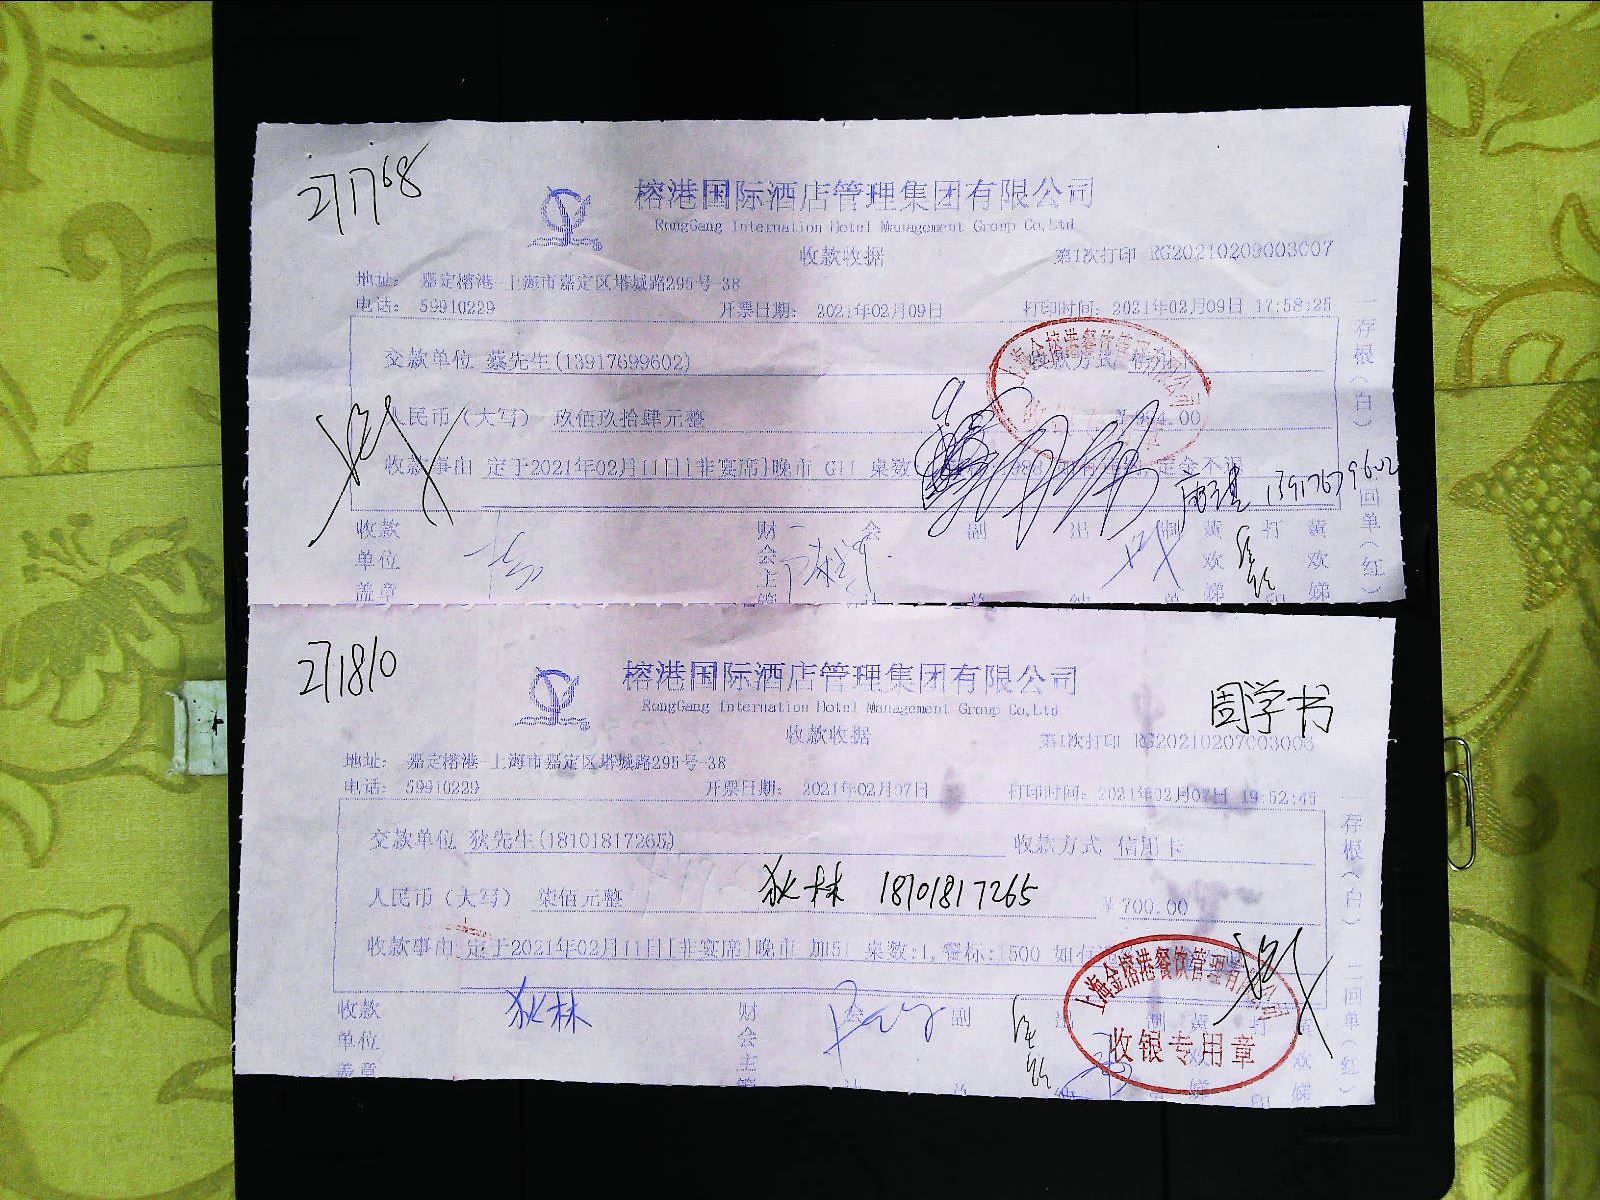 271768
榕港国际酒店管理集团有限公司
RongGang Internation Hotel Management Group Co,Ltd
收款收据
第1次打印 RG20210209003007
地址: 嘉定榕港-上海市嘉定区塔城路295号-38
电话: 59910229 开票日期: 2021年02月09日 打印时间: 2021年02月09日 17:58:25
交款单位 蔡先生(13917699602) 收款方式 信用卡
人民币(大写) 玖佰玖拾肆元整 ¥994.00
收款事由 定于2021年02月11日[非宴席]晚市 G11 桌数 定金不退
13917679602
收款单位盖章 财会主管 会计 副总 出纳 制单 黄欢娣 打印 黄欢娣
一存根(白) 二回单(红)
271810
周学书
榕港国际酒店管理集团有限公司
RongGang Internation Hotel Management Group Co,Ltd
收款收据
第1次打印 RG20210207003006
地址: 嘉定榕港-上海市嘉定区塔城路295号-38
电话: 59910229 开票日期: 2021年02月07日 打印时间: 2021年02月07日 19:52:45
交款单位 狄先生(18101817265) 收款方式 信用卡
狄林 18101817265
人民币(大写) 柒佰元整 ¥700.00
收款事由 定于2021年02月11日[非宴席]晚市 加51 桌数:1,餐标:1500 如有
上海金榕港餐饮管理有限公司
收银专用章
狄林
收款单位盖章 财会主管 会计 副总 出纳 制单 黄欢娣 打印 黄欢娣
一存根(白) 二回单(红)